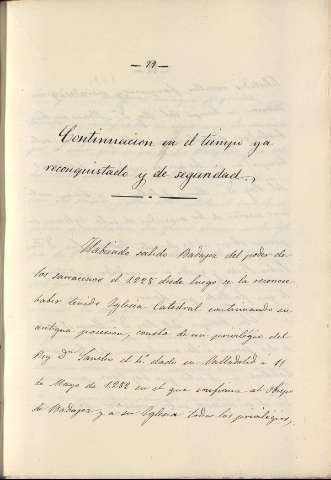 — 99 —
Continuacion en el tiempo ya
reconquistado y de seguridad.,
Habiendo salido Badajoz del poder de
los sarracenos el 1225 desde luego se la reconoce
haber tenido Yglesia Catedral continuando su
antigua posesion, consta de un privilegio del
Rey Dn. Sancho el 4º dado en Valladolid á 11
de Mayo de 1282 en el que confirma al Obispo
de Badajoz y á su Yglesia todos los privilegios,